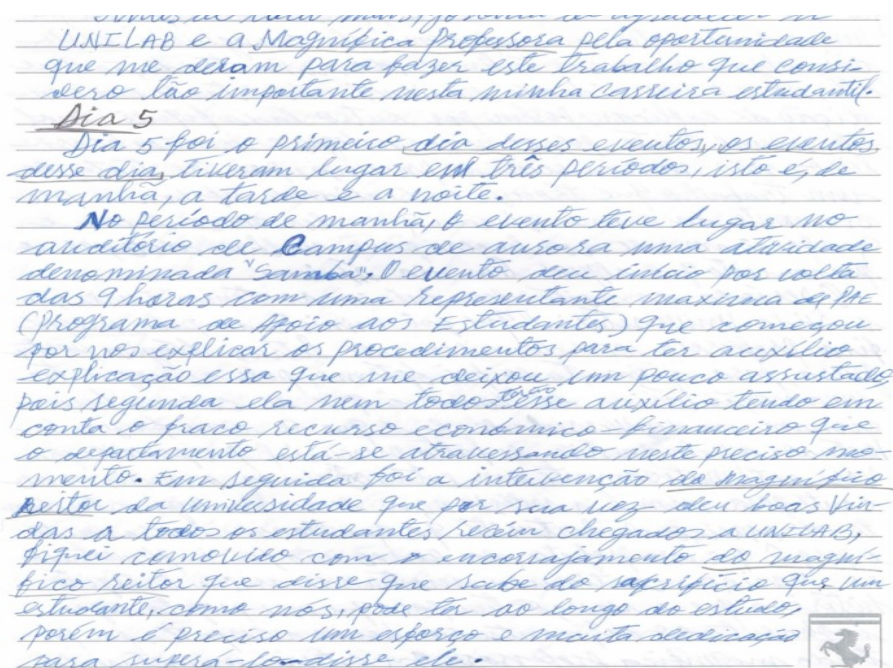 UNILAB e a Magnífica Professora pela oportunidade
que me deram para fazer este trabalho que consi-
dero tão importante nesta minha carreira estudantil.
Dia 5
Dia 5 foi o primeiro dia desses eventos, os eventos
desse dia, tiveram lugar em três períodos, isto é, de
manhã, a tarde e a noite.
No período de manhã, o evento teve lugar no
auditório de Campus de aurora uma atividade
denominada "Samba". O evento deu início por volta
das 9 horas com uma representante maxima de PAE
(Programa de Apoio aos Estudantes) que começou
por nos explicar os procedimentos para ter auxílio
explicação essa que me deixou um pouco assustado
pois segunda ela nem todo auxílio tendo em
conta o fraco recurso económico-financeiro que
o departamento está-se atravessando neste preciso mo-
mento. Em seguida foi a intervenção do magnífico
reitor da universidade que por sua vez deu boas Vin-
das a todos os estudantes recém chegados a UNILAB,
fiquei comovido com o encorajamento do magní-
fico reitor que disse que sabe do sacrifício que um
estudante, como nós, pode ter ao longo do estudo,
porém é preciso um esforço e muita dedicação
para superá-lo-disse ele.